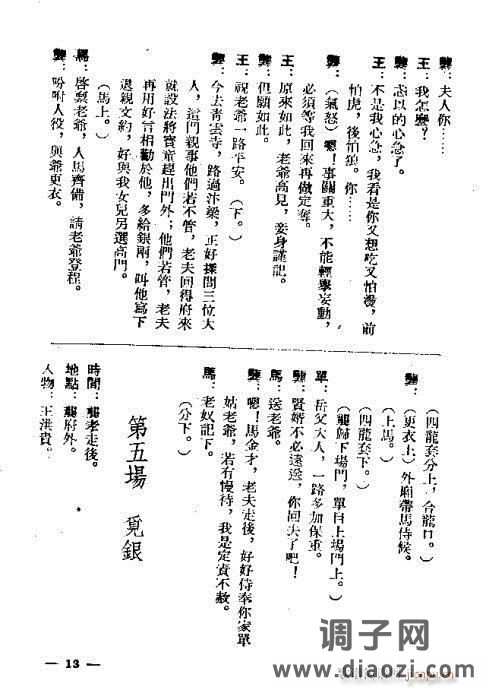 龔：夫人你……
王：我怎麼？
龔：忒以的心急了。
王：不是我心急，我看是你又想吃又怕燙，前
怕虎，後怕狼。你……
龔：（氣怒）嗯！事關重大，不能輕擧妄動，
必須等我回來再做定奪。
王：原來如此，老爺高見，妾身謹記。
龔：但願如此。
王：祝老爺一路平安。（下。）
龔：今去靑雲寺，路過汴梁，正好探問三位大
人，這門親事他們若不管，老夫回得府來
就設法將寳童趕出門外；他們若管，老夫
再用好言相勸於他，多給銀兩，叫他寫下
退親文約，好與我女兒另選高門。
（馬上。）
馬：啓禀老爺，人馬齊備，請老爺登程。
龔：吩咐人役，與爺更衣。
（四龍套分上，合龍口。）
龔：（更衣上）外廂帶馬侍候。
（上馬。）
（四龍套下。）
（龔歸下場門，單自上場門上。）
單：岳父大人，一路多加保重。
龔：賢婿不必遠送，你回去了吧！
馬：送老爺。
龔：嗯！馬金才，老夫走後，好好侍奉你家單
姑老爺，若有慢待，我是定責不赦。
馬：老奴記下。
（分下。）
第五場　覓銀
時間：龔老走後。
地點：龔府外。
人物：王洪貴。
— 13 —
调子网
www.diaozi.com